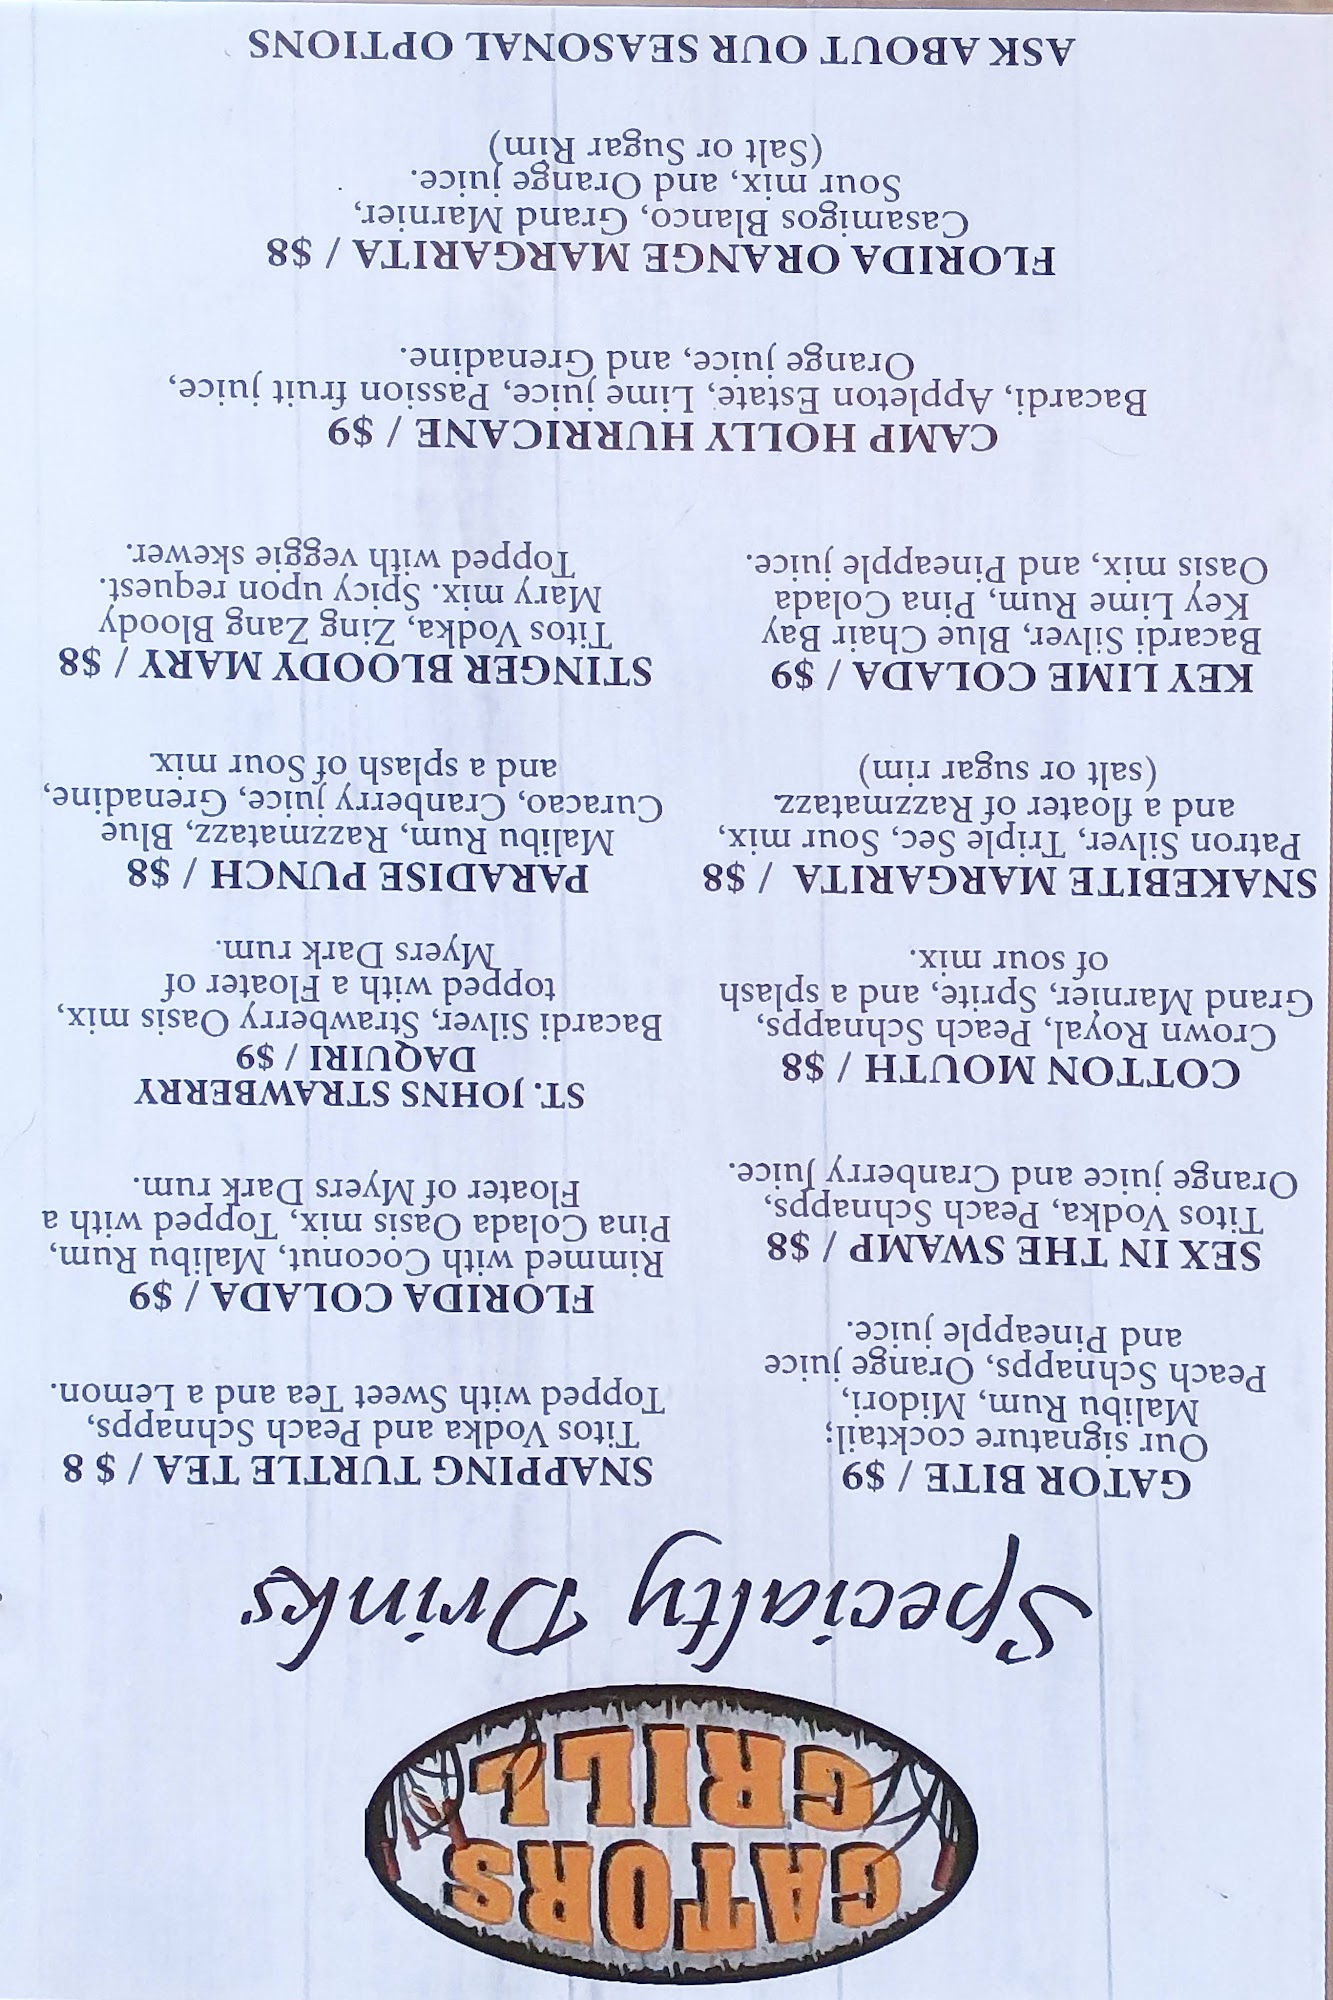 GATORS
GRILL
Specialty Drinks
GATOR BITE / $9
Our signature cocktail;
Malibu Rum, Midori,
Peach Schnapps, Orange juice
and Pineapple juice.
SEX IN THE SWAMP / $8
Titos Vodka, Peach Schnapps,
Orange juice and Cranberry Juice.
COTTON MOUTH / $8
Crown Royal, Peach Schnapps,
Grand Marnier, Sprite, and a splash
of sour mix.
SNAKEBITE MARGARITA / $8
Patron Silver, Triple Sec, Sour mix,
and a floater of Razzmatazz
(salt or sugar rim)
KEY LIME COLADA / $9
Bacardi Silver, Blue Chair Bay
Key Lime Rum, Pina Colada
Oasis mix, and Pineapple juice.
SNAPPING TURTLE TEA / $ 8
Titos Vodka and Peach Schnapps,
Topped with Sweet Tea and a Lemon.
FLORIDA COLADA / $9
Rimmed with Coconut, Malibu Rum,
Pina Colada Oasis mix, Topped with a
Floater of Myers Dark rum.
ST. JOHNS STRAWBERRY
DAQUIRI / $9
Bacardi Silver, Strawberry Oasis mix,
topped with a Floater of
Myers Dark rum.
PARADISE PUNCH / $8
Malibu Rum, Razzmatazz, Blue
Curacao, Cranberry juice, Grenadine,
and a splash of Sour mix
STINGER BLOODY MARY / $8
Titos Vodka, Zing Zang Bloody
Mary mix. Spicy upon request.
Topped with veggie skewer.
CAMP HOLLY HURRICANE / $9
Bacardi, Appleton Estate, Lime juice, Passion fruit juice,
Orange juice, and Grenadine.
FLORIDA ORANGE MARGARITA / $8
Casamigos Blanco, Grand Marnier,
Sour mix, and Orange juice.
(Salt or Sugar Rim)
ASK ABOUT OUR SEASONAL OPTIONS